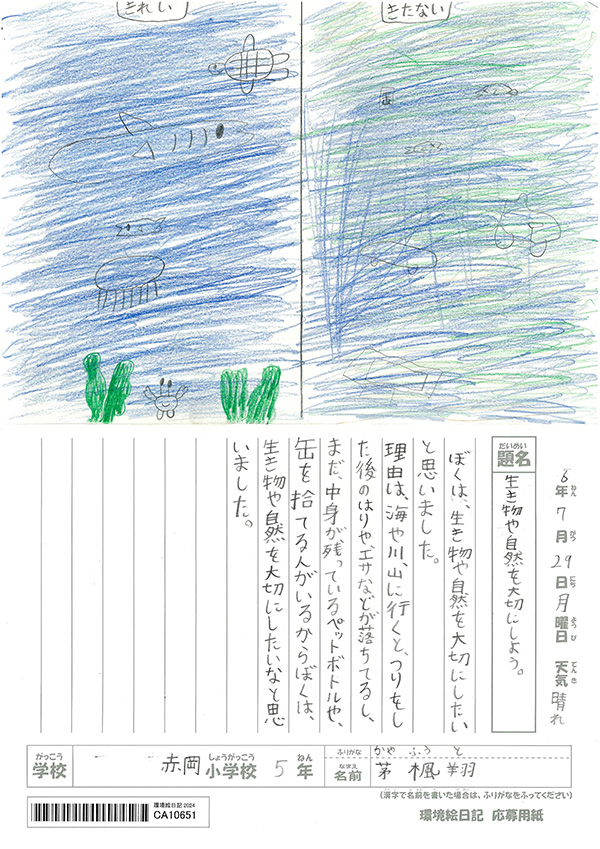 きれい
きたない
6年7月29日月曜日 天気 晴れ
ねん がつ にち ようび てんき
だいめい
題名
生き物や自然を大切にしよう。
ぼくは、生き物や自然を大切にしたい
と思いました。
理由は、海や川、山に行くと、つりをし
た後のはりやエサなどが落ちてるし、
まだ、中身が残っているペットボトルや、
缶を捨てる人がいるからぼくは、
生き物や自然を大切にしたいなと思
いました。
がっこう しょうがっこう ねん
学校 赤岡小学校 5年
ふりがな かや ふうと
なまえ
名前 茅 楓羽
(漢字で名前を書いた場合は、ふりがなをふってください)
環境絵日記 2024
CA10651
環境絵日記 応募用紙